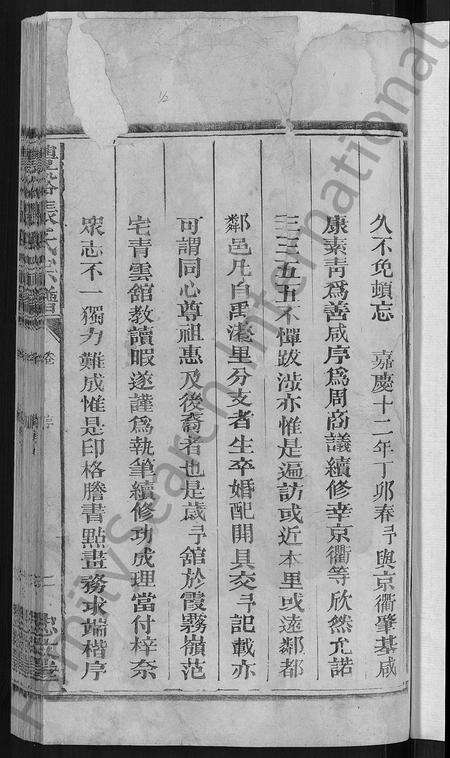 久不免頓忘 嘉慶十二年丁卯春予與京衢肇基咸
康素靑爲善咸序爲周商議續修幸京衢等欣然允諾
三三五五不憚跋涉亦惟是遍訪或近本里或遠鄰都
鄰邑凡自禹濠里分支者生卒婚配開具交予記載亦
可謂同心尊祖惠及後裔者也是歲予舘於霞霧嶺范
宅青雲舘教讀暇遂謹爲執筆續修功成理當付梓奈
眾志不一獨力難成惟是印格謄書點畫務求端楷序
張氏宗譜
卷
二
FamilySearch International